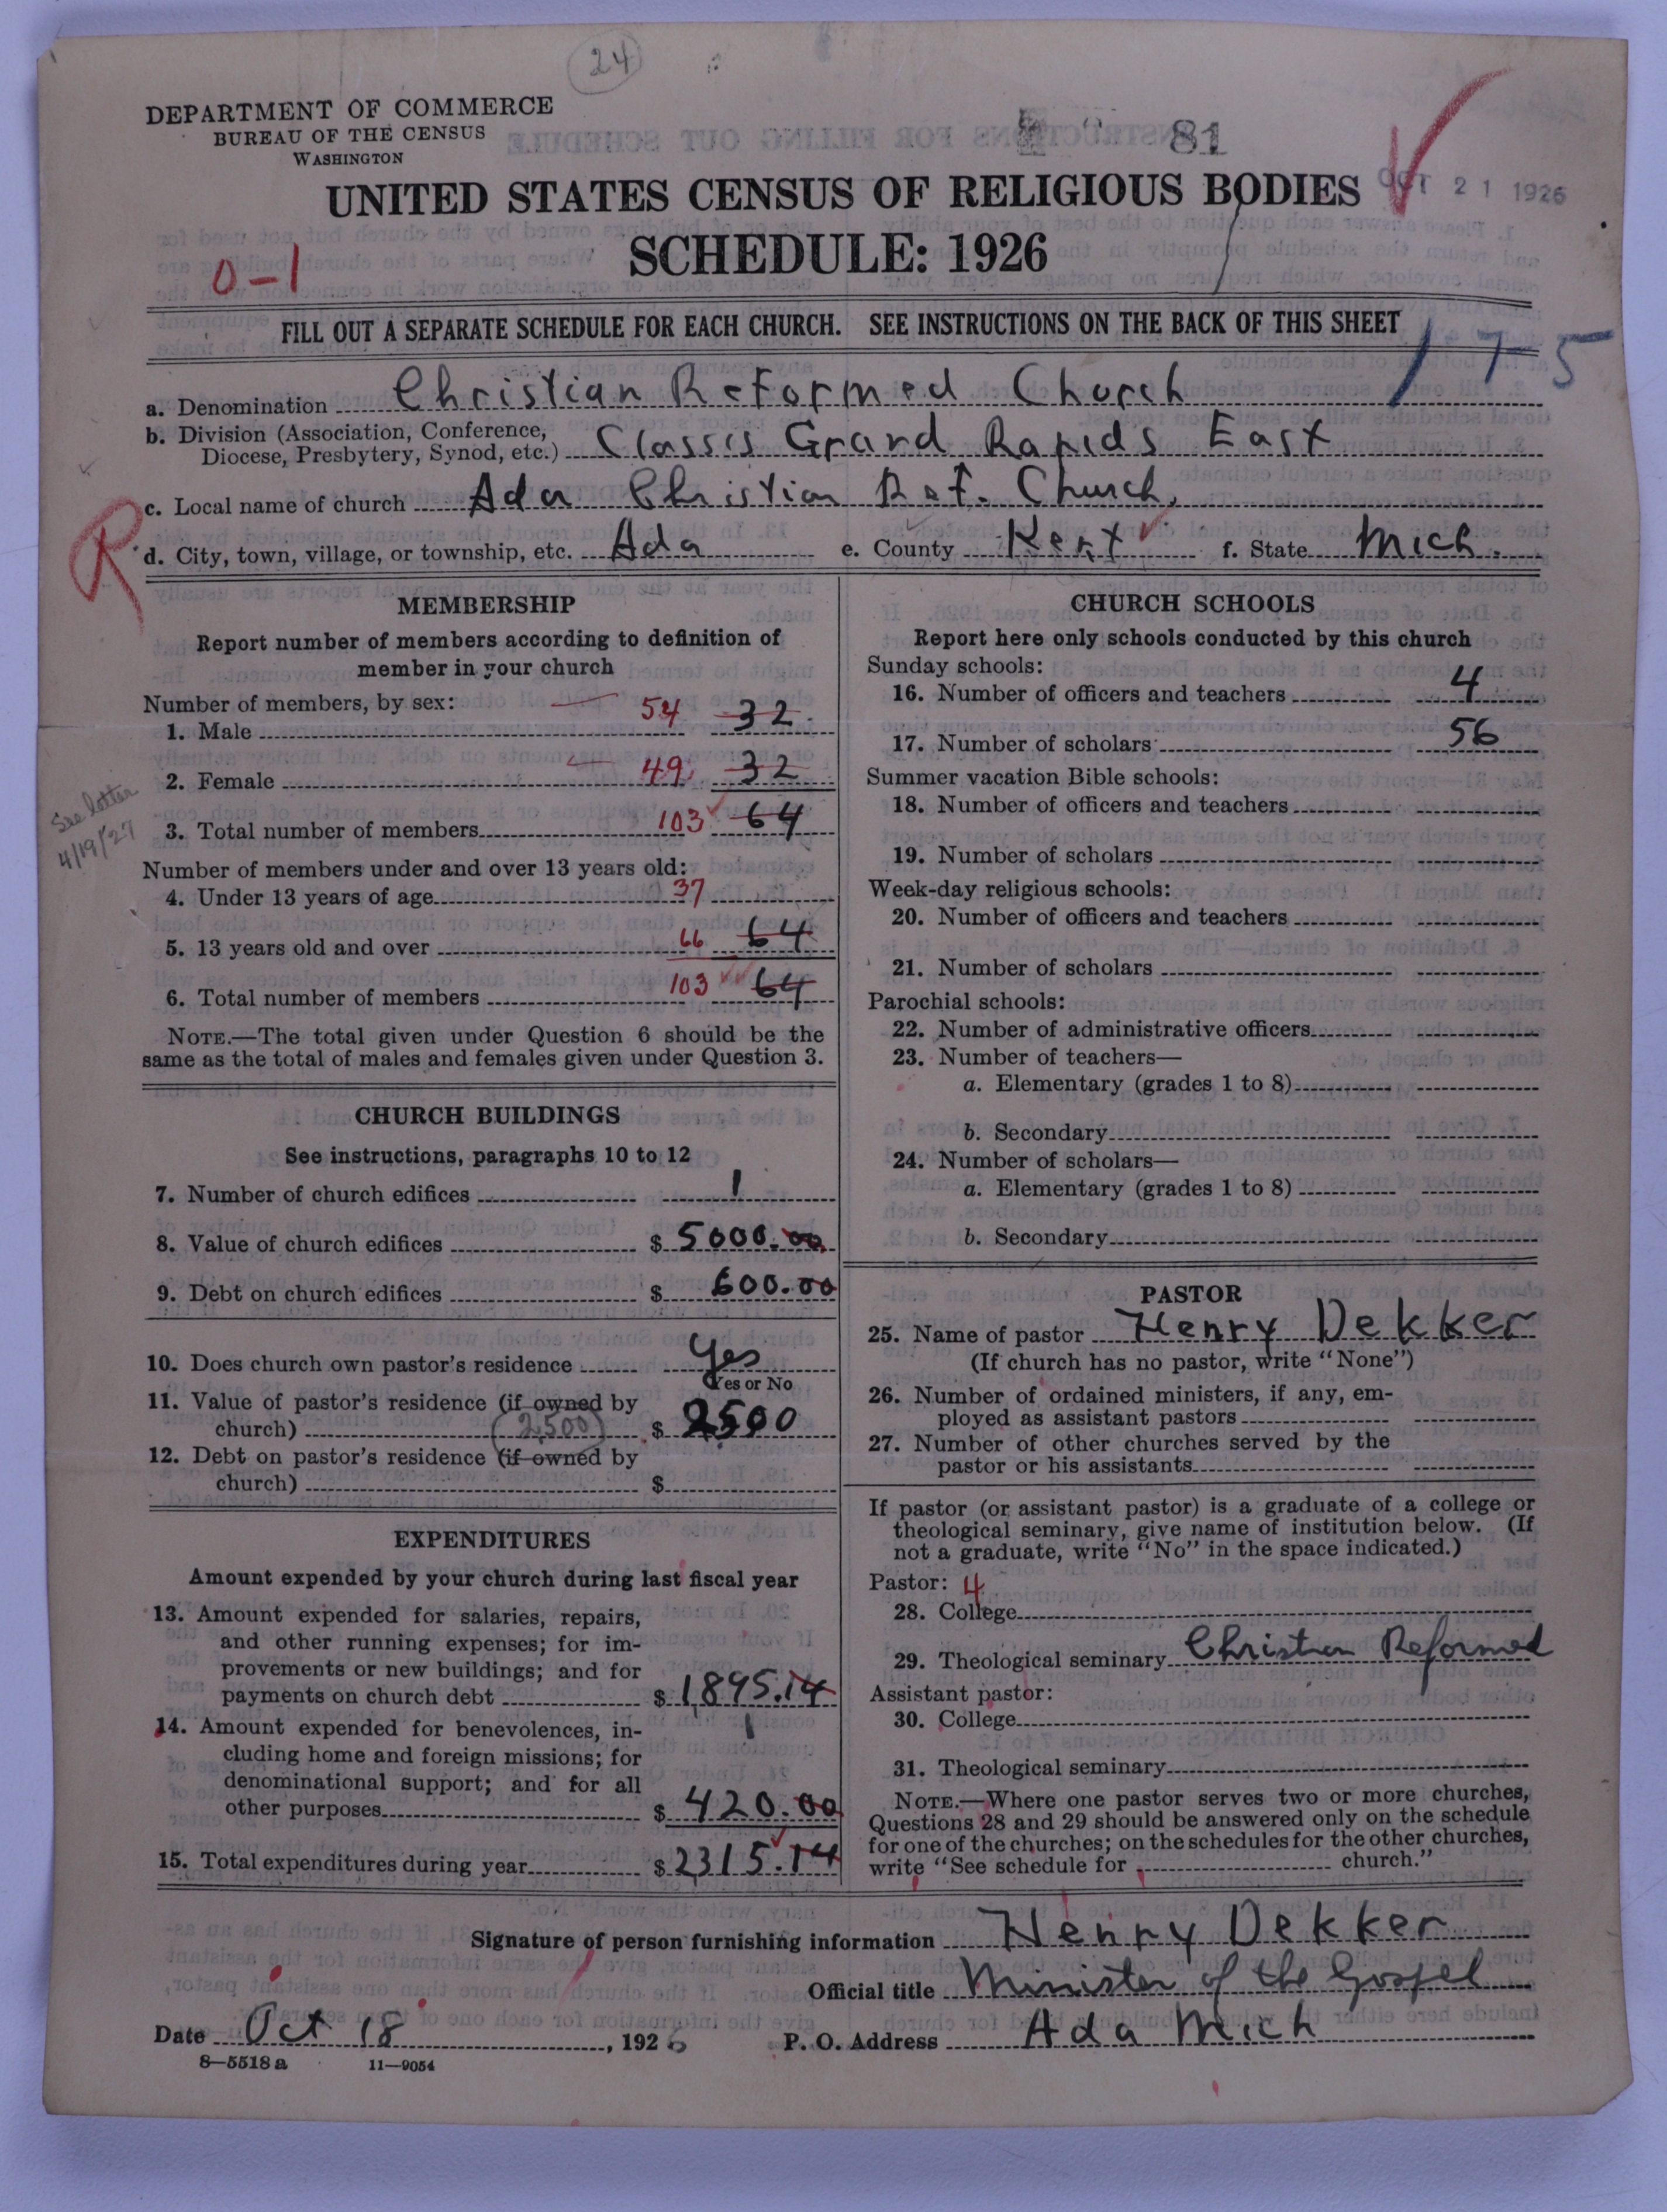 24
DEPARTMENT OF COMMERCE
BUREAU OF THE CENSUS
WASHINGTON
81
UNITED STATES CENSUS OF RELIGIOUS BODIES
OCT 21 1926
SCHEDULE: 1926
0-1
FILL OUT A SEPARATE SCHEDULE FOR EACH CHURCH. SEE INSTRUCTIONS ON THE BACK OF THIS SHEET
175
a. Denomination Christian Reformed Church
b. Division (Association, Conference, Diocese, Presbytery, Synod, etc.) Classis Grand Rapids East
c. Local name of church Ada Christian Ref. Church,
R
d. City, town, village, or township, etc. Ada e. County Kent f. State Mich.
MEMBERSHIP
Report number of members according to definition of
member in your church
Number of members, by sex:
1. Male 54 32
2. Female 49 32
3. Total number of members 103 64
See letter
4/19/27
Number of members under and over 13 years old:
4. Under 13 years of age 37
5. 13 years old and over 66 64
6. Total number of members 103 64
NOTE.—The total given under Question 6 should be the
same as the total of males and females given under Question 3.
CHURCH BUILDINGS
See instructions, paragraphs 10 to 12
7. Number of church edifices 1
8. Value of church edifices $ 5000.00
9. Debt on church edifices $ 600.00
10. Does church own pastor's residence Yes
Yes or No
11. Value of pastor's residence (if owned by
church) (2,500) $ 2500
12. Debt on pastor's residence (if owned by
church) $
EXPENDITURES
Amount expended by your church during last fiscal year
13. Amount expended for salaries, repairs,
and other running expenses; for im-
provements or new buildings; and for
payments on church debt $ 1,895.14
14. Amount expended for benevolences, in-
cluding home and foreign missions; for
denominational support; and for all
other purposes $ 420.00
15. Total expenditures during year $ 2315.14
CHURCH SCHOOLS
Report here only schools conducted by this church
Sunday schools:
16. Number of officers and teachers 4
17. Number of scholars 56
Summer vacation Bible schools:
18. Number of officers and teachers
19. Number of scholars
Week-day religious schools:
20. Number of officers and teachers
21. Number of scholars
Parochial schools:
22. Number of administrative officers
23. Number of teachers—
a. Elementary (grades 1 to 8)
b. Secondary
24. Number of scholars—
a. Elementary (grades 1 to 8)
b. Secondary
PASTOR
25. Name of pastor Henry Dekker
(If church has no pastor, write "None")
26. Number of ordained ministers, if any, em-
ployed as assistant pastors
27. Number of other churches served by the
pastor or his assistants
If pastor (or assistant pastor) is a graduate of a college or
theological seminary, give name of institution below. (If
not a graduate, write "No" in the space indicated.)
Pastor: 4
28. College
29. Theological seminary Christian Reformed
Assistant pastor:
30. College
31. Theological seminary
NOTE.—Where one pastor serves two or more churches,
Questions 28 and 29 should be answered only on the schedule
for one of the churches; on the schedules for the other churches,
write "See schedule for church."
Signature of person furnishing information Henry Dekker
Official title Minister of the Gospel
Date Oct 18, 1926 P. O. Address Ada Mich
8—5518 a 11—9054